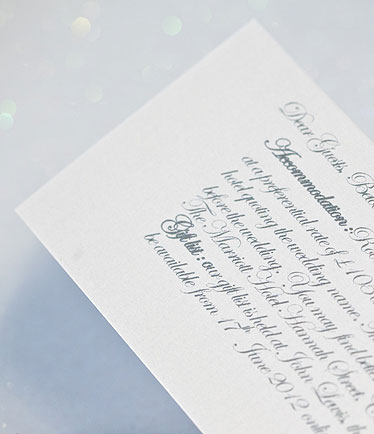 Dear Guests,
Accommodation : Roo
at a preferential rate of £105
hotel quoting the wedding name.
before the wedding. You may find bett
The Marriott Hotel, Hannah Street, C
Gift list : our gift list is held at John Lewis, th
be available from 17th June 2012 onl